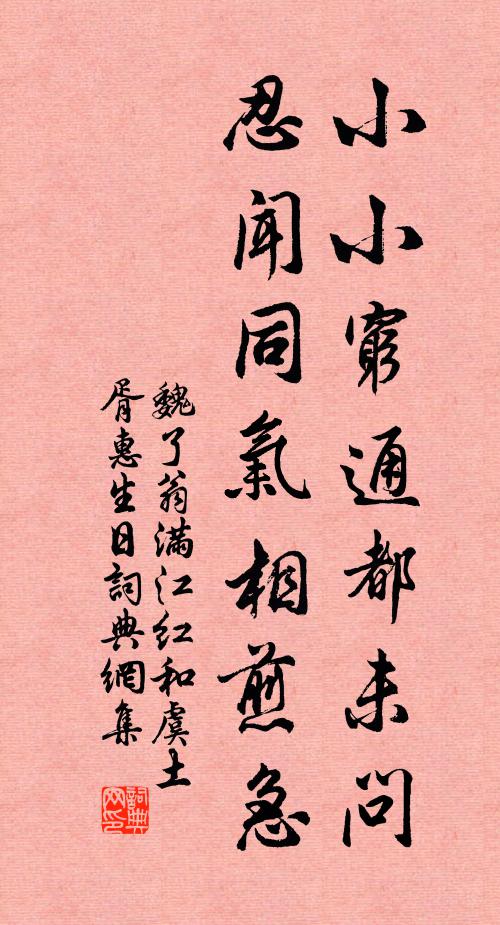 小小窮通都未問
忍聞同氣相煎急
魏了翁滿江红和虞土
胥惠生日詞典網集
詞典
网印